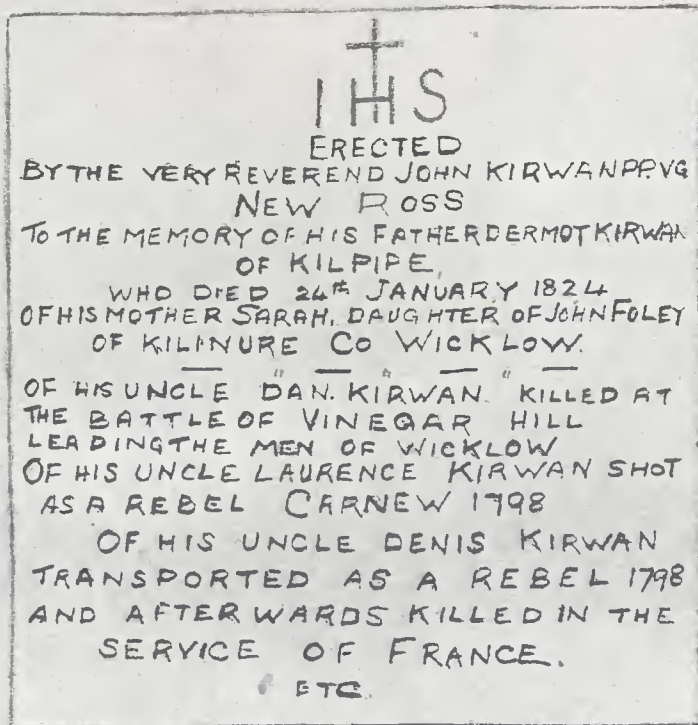 IHS
ERECTED
BY THE VERY REVEREND JOHN KIRWAN PP.VG
NEW ROSS
TO THE MEMORY OF HIS FATHER DERMOT KIRWAN
OF KILPIPE,
WHO DIED 24th JANUARY 1824
OF HIS MOTHER SARAH, DAUGHTER OF JOHN FOLEY
OF KILINURE CO WICKLOW.
— " — " — " —
OF HIS UNCLE DAN. KIRWAN KILLED AT
THE BATTLE OF VINEGAR HILL
LEADING THE MEN OF WICKLOW
OF HIS UNCLE LAURENCE KIRWAN SHOT
AS A REBEL CARNEW 1798
OF HIS UNCLE DENIS KIRWAN
TRANSPORTED AS A REBEL 1798
AND AFTERWARDS KILLED IN THE
SERVICE OF FRANCE.
ETC.